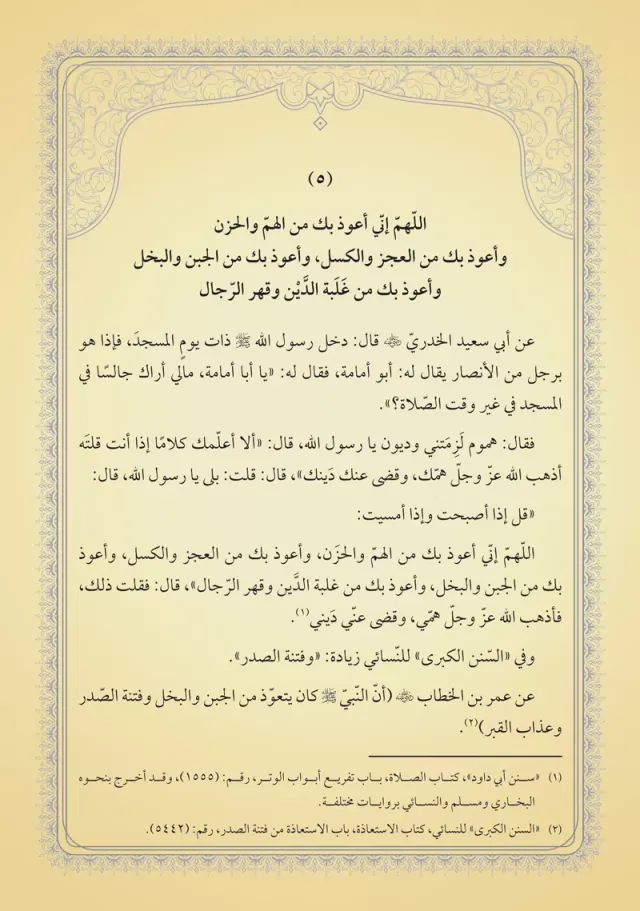 (٥)
اللّهمّ إنّي أعوذ بك من الهمّ والحزن
وأعوذ بك من العجز والكسل، وأعوذ بك من الجبن والبخل
وأعوذ بك من غَلَبة الدَّيْن وقهر الرّجال
عن أبي سعيد الخدريّ ﵁ قال: دخل رسول الله ﷺ ذات يومٍ المسجدَ، فإذا هو
برجل من الأنصار يقال له: أبو أمامة، فقال له: «يا أبا أمامة، مالي أراك جالسًا في
المسجد في غير وقت الصّلاة؟».
فقال: هموم لَزِمَتني وديون يا رسول الله، قال: «ألا أعلّمك كلامًا إذا أنت قلتَه
أذهب الله عزّ وجلّ همّك، وقضى عنك دَينك»، قال: قلت: بلى يا رسول الله، قال:
«قل إذا أصبحت وإذا أمسيت:
اللّهمّ إنّي أعوذ بك من الهمّ والحزَن، وأعوذ بك من العجز والكسل، وأعوذ
بك من الجبن والبخل، وأعوذ بك من غلبة الدَّين وقهر الرّجال»، قال: فقلت ذلك،
فأذهب الله عزّ وجلّ همّي، وقضى عنّي دَيني(١).
وفي «السّنن الكبرى» للنّسائي زيادة: «وفتنة الصدر».
عن عمر بن الخطاب ﵁ (أنّ النّبيّ ﷺ كان يتعوّذ من الجبن والبخل وفتنة الصّدر
وعذاب القبر)(٢).
(١) «سنن أبي داود»، كتاب الصلاة، باب تفريع أبواب الوتر، رقم: (١٥٥٥)، وقد أخرج بنحوه
البخاري ومسلم والنسائي بروايات مختلفة.
(٢) «السنن الكبرى» للنسائي، كتاب الاستعاذة، باب الاستعاذة من فتنة الصدر، رقم: (٥٤٤٢).